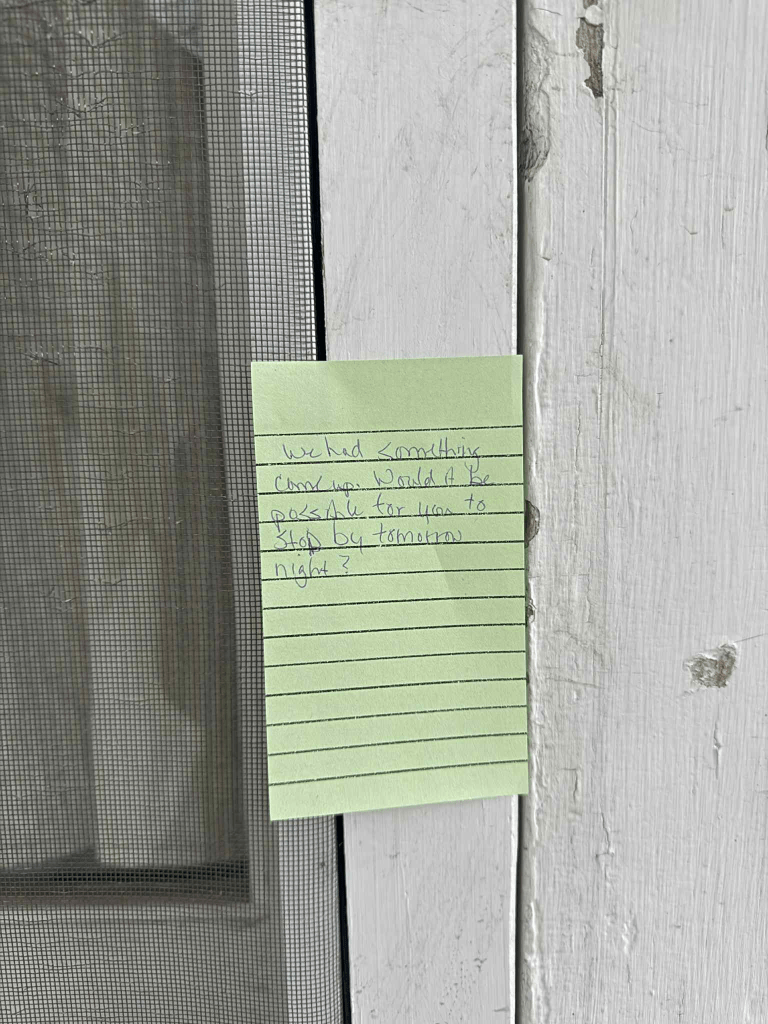 We had something
come up. Would it be
possible for you to
stop by tomorrow
night?